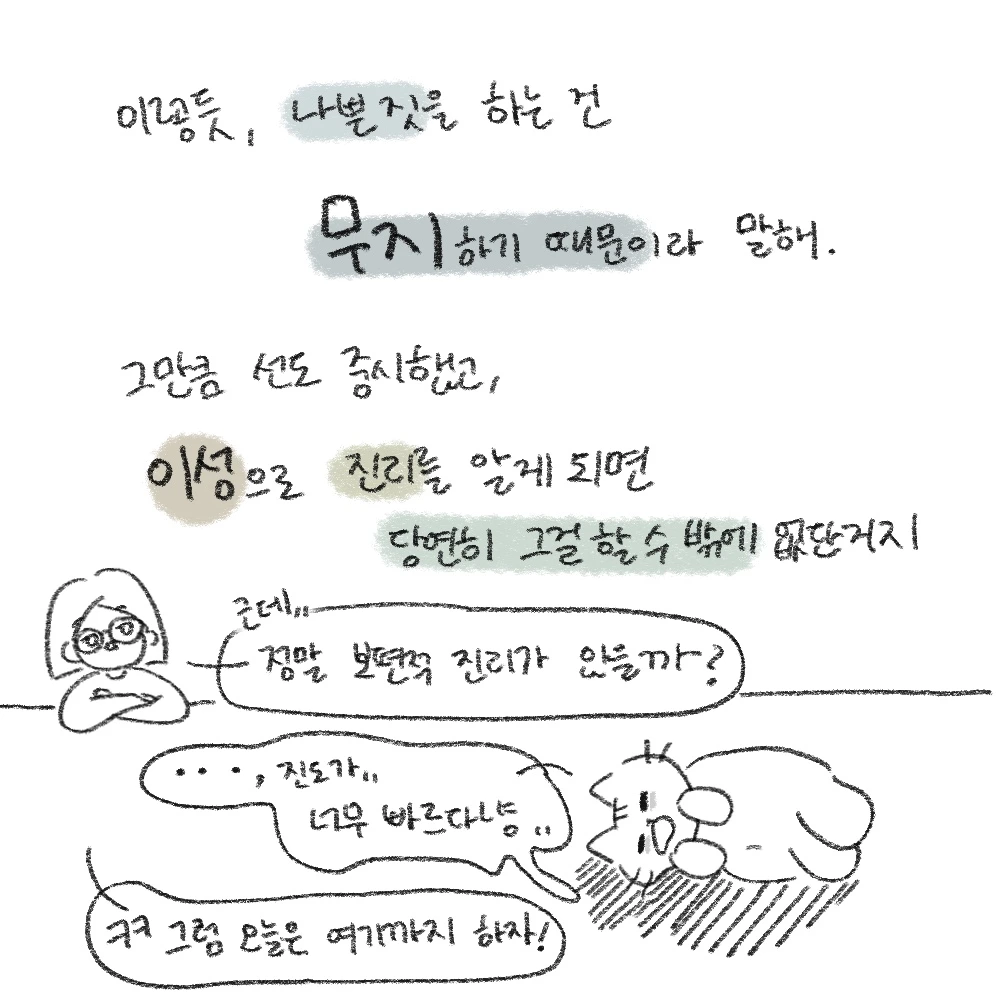 이렇듯, 나쁜 짓을 하는 건
무지하기 때문이라 말해.
그만큼 선도 중시했고,
이성으로 진리를 알게 되면
당연히 그걸 할 수 밖에 없단거지
근데..
정말 보편적 진리가 있을까?
..., 진도가..
너무 빠르다냥..
ㅋㅋ 그럼 오늘은 여기까지 하자!